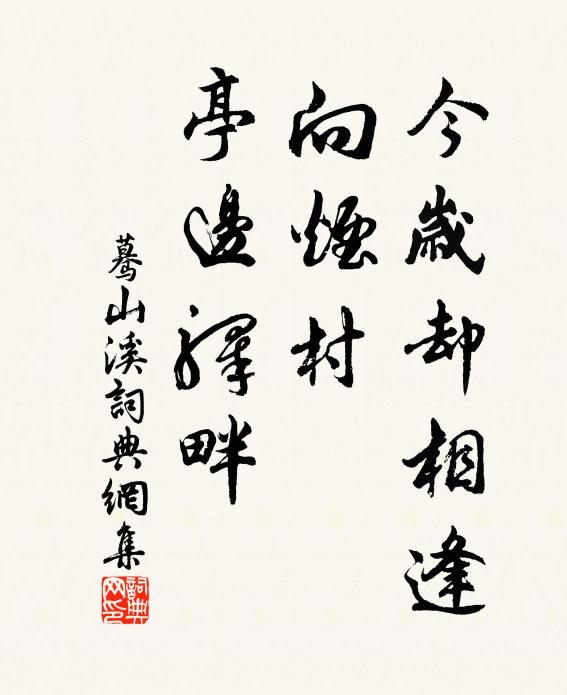 今歲却相逢
向煙村
亭邊驛畔
驀山溪詞典網集
詞典网印